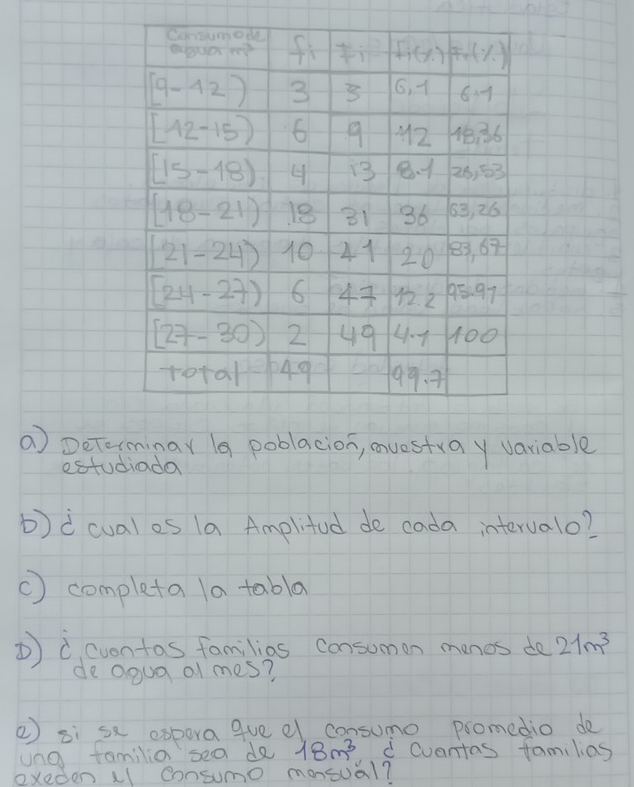 Consumo de agua m³ fi Fi fi(%) Fi(%)
[9-12) 3 3 6,1 6.1
[12-15) 6 9 12 18,36
[15-18) 4 13 8.1 26,53
[18-21) 18 31 36 63,26
[21-24) 10 41 20 83,67
[24-27) 6 47 12.2 95.91
[27-30) 2 49 4.1 100
total 49 99.7
a) Determinar la población, muestra y variable
estudiada
b) ¿ cual es la Amplitud de cada intervalo?
c) completa la tabla
D) ¿ cuantas familias consumen menos de 21m³
de agua al mes?
e) si se espera que el consumo promedio de
una familia sea de 18m³ ¿ cuantas familias
exeden el consumo mensual?